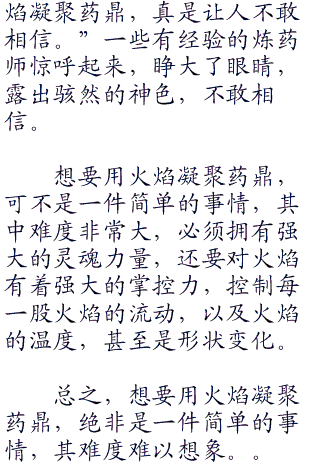 焰凝聚药鼎，真是让人不敢
相信。”一些有经验的炼药
师惊呼起来，睁大了眼睛，
露出骇然的神色，不敢相
信。
想要用火焰凝聚药鼎，
可不是一件简单的事情，其
中难度非常大，必须拥有强
大的灵魂力量，还要对火焰
有着强大的掌控力，控制每
一股火焰的流动，以及火焰
的温度，甚至是形状变化。
总之，想要用火焰凝聚
药鼎，绝非是一件简单的事
情，其难度难以想象。。